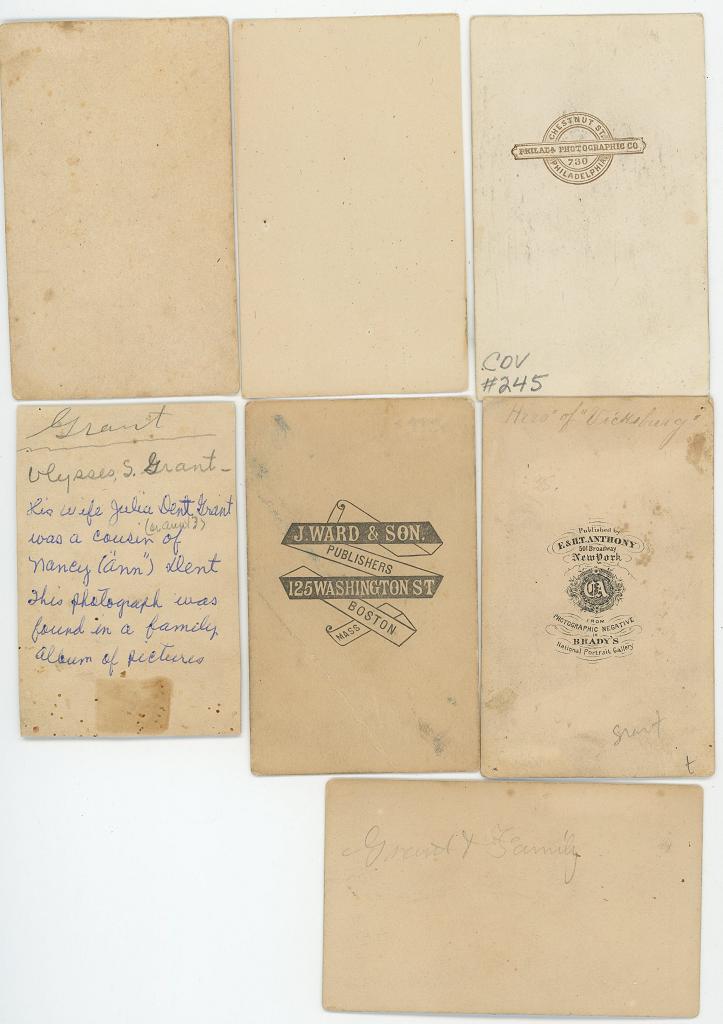 CHESTNUT ST.
PHILADA PHOTOGRAPHIC CO
730
PHILADELPHIA
COV
#245
Grant
Ulysses, S. Grant -
His wife Julia Dent Grant
was a cousin of
Nancy ("Ann") Dent
This photograph was
found in a family
album of pictures
J. WARD & SON.
PUBLISHERS
125 WASHINGTON ST
BOSTON
MASS
"Hero" of "Vicksburg"
Published by
E. & H.T. ANTHONY
501 Broadway
New York
EA
FROM
PHOTOGRAPHIC NEGATIVE
IN
BRADY'S
National Portrait Gallery
Grant
t
Grant & Family